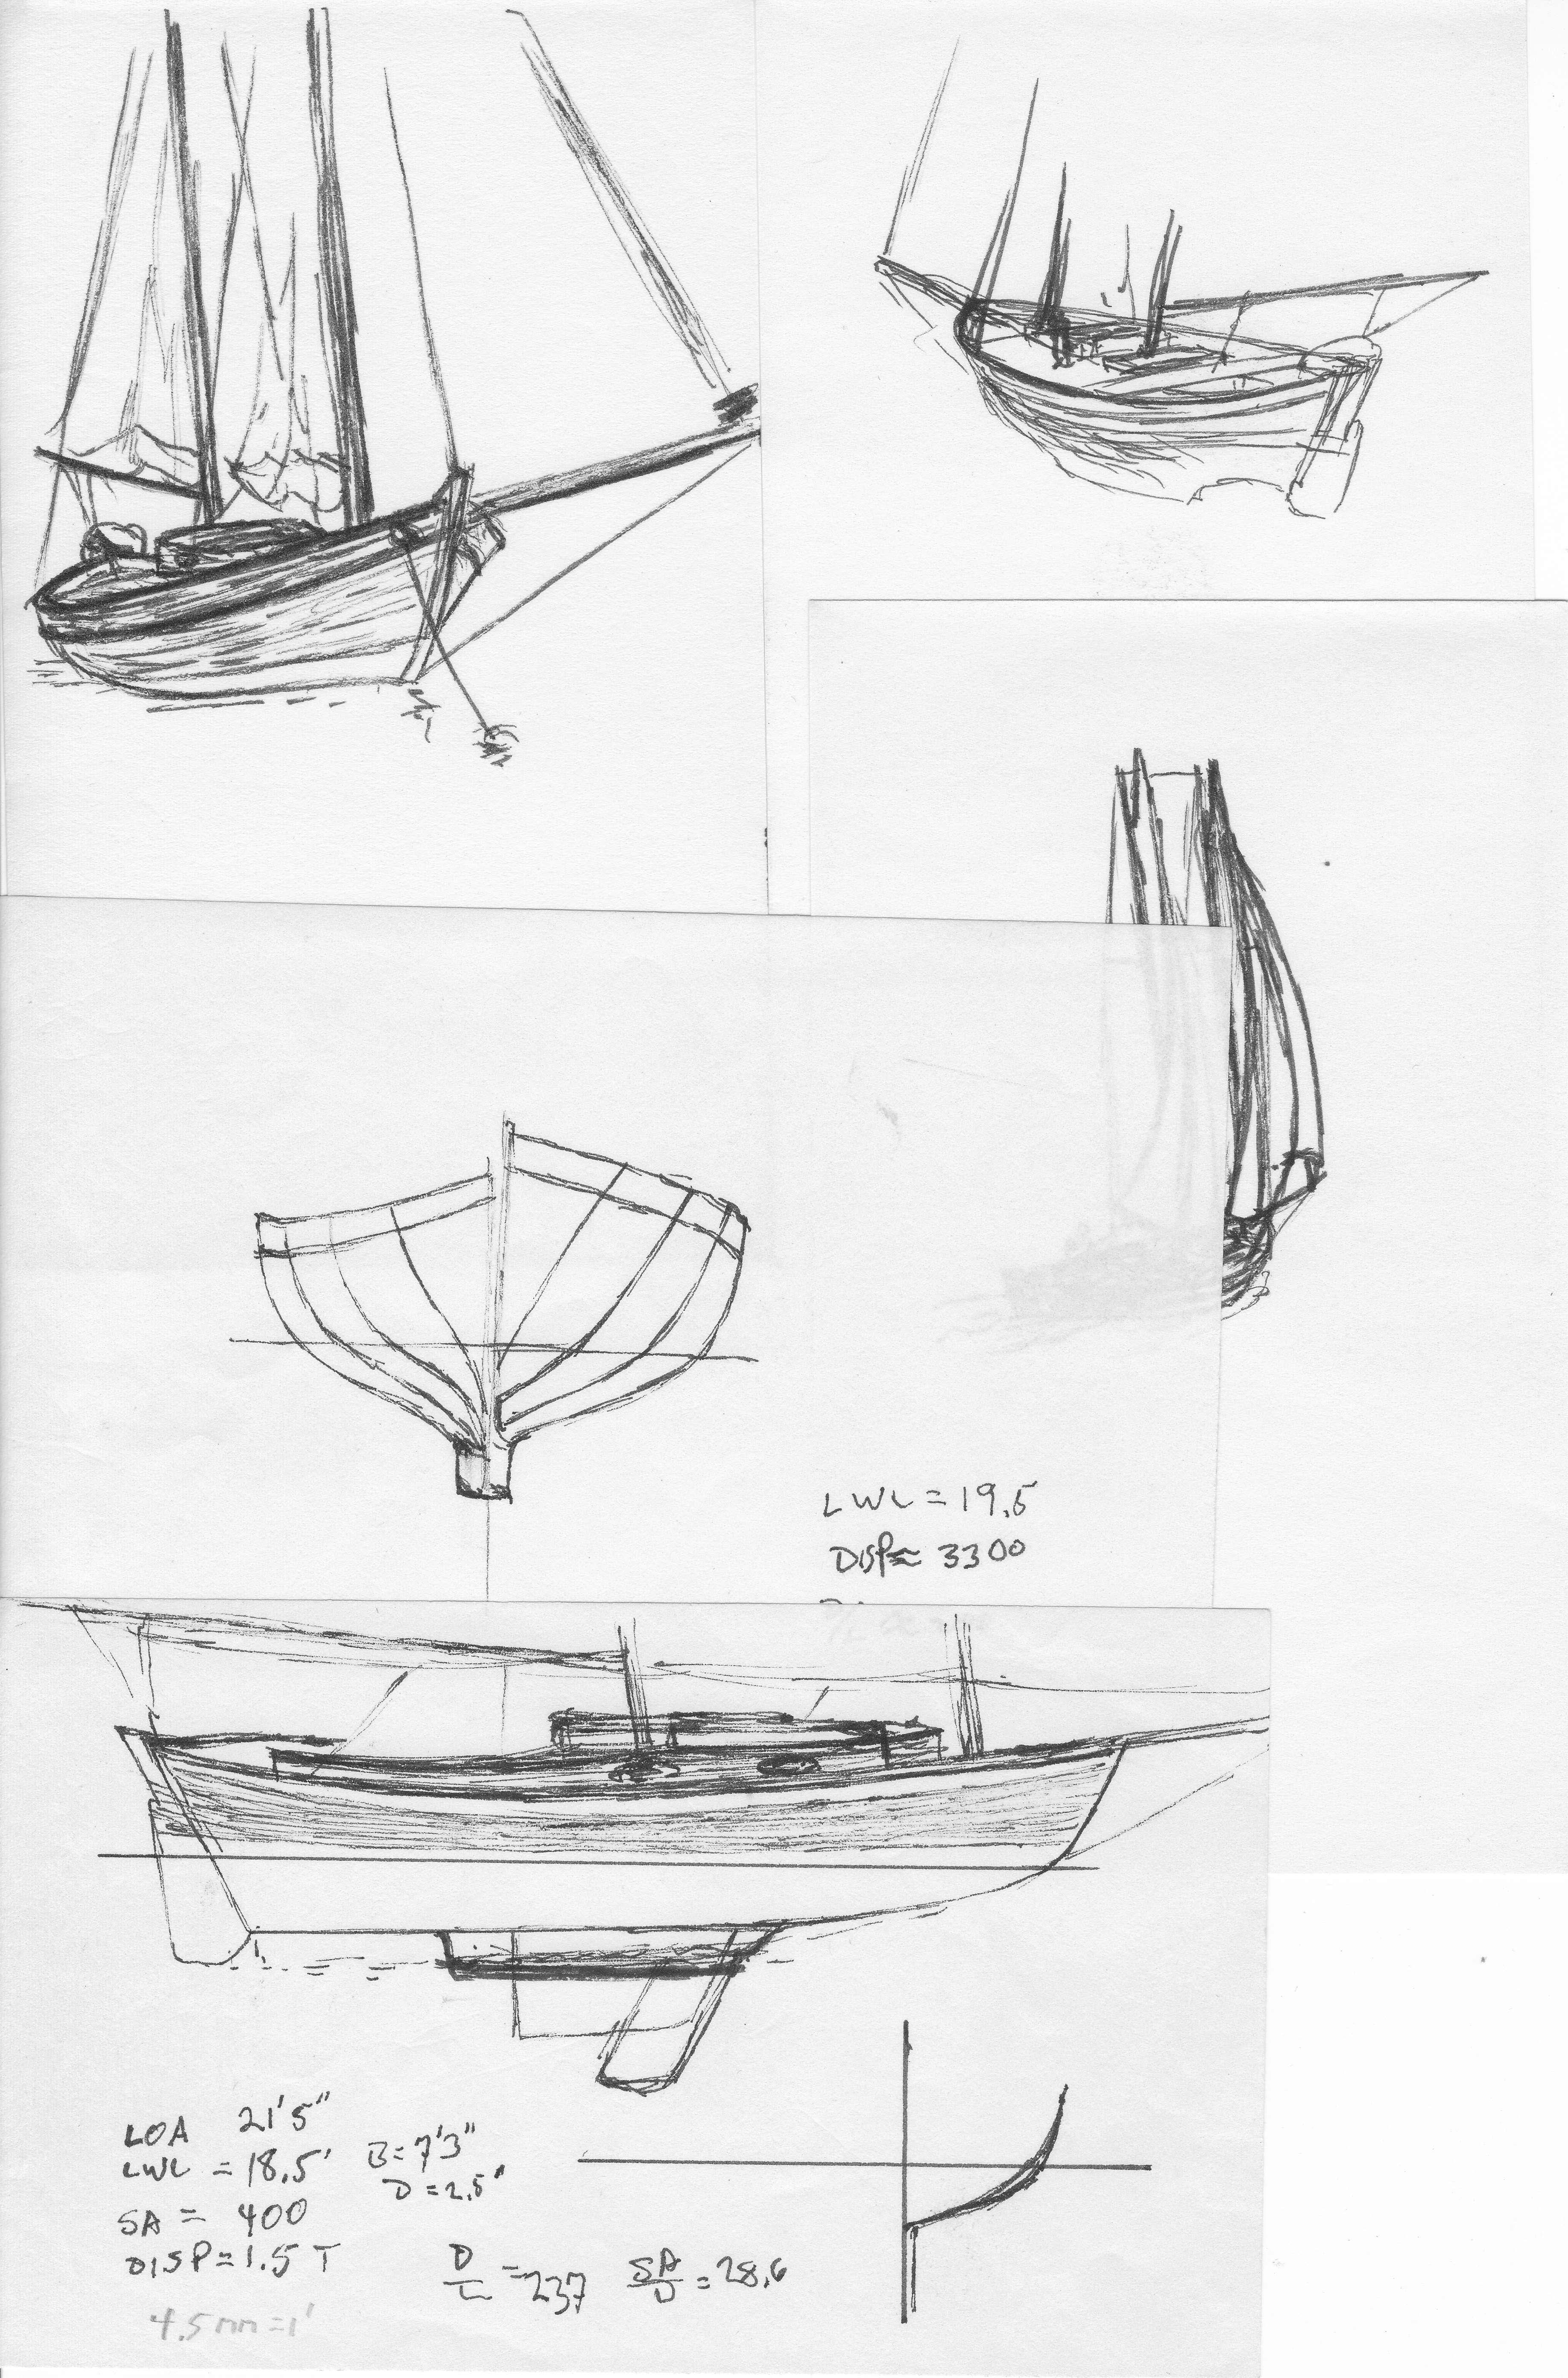 LWL = 19.5
DISP ≈ 3300
LOA 21'5"
LWL = 18.5' B = 7'3"
D = 2.5"
SA = 400
DISP = 1.5 T
D/L = 237 SA/D = 28.6
4.5mm = 1'